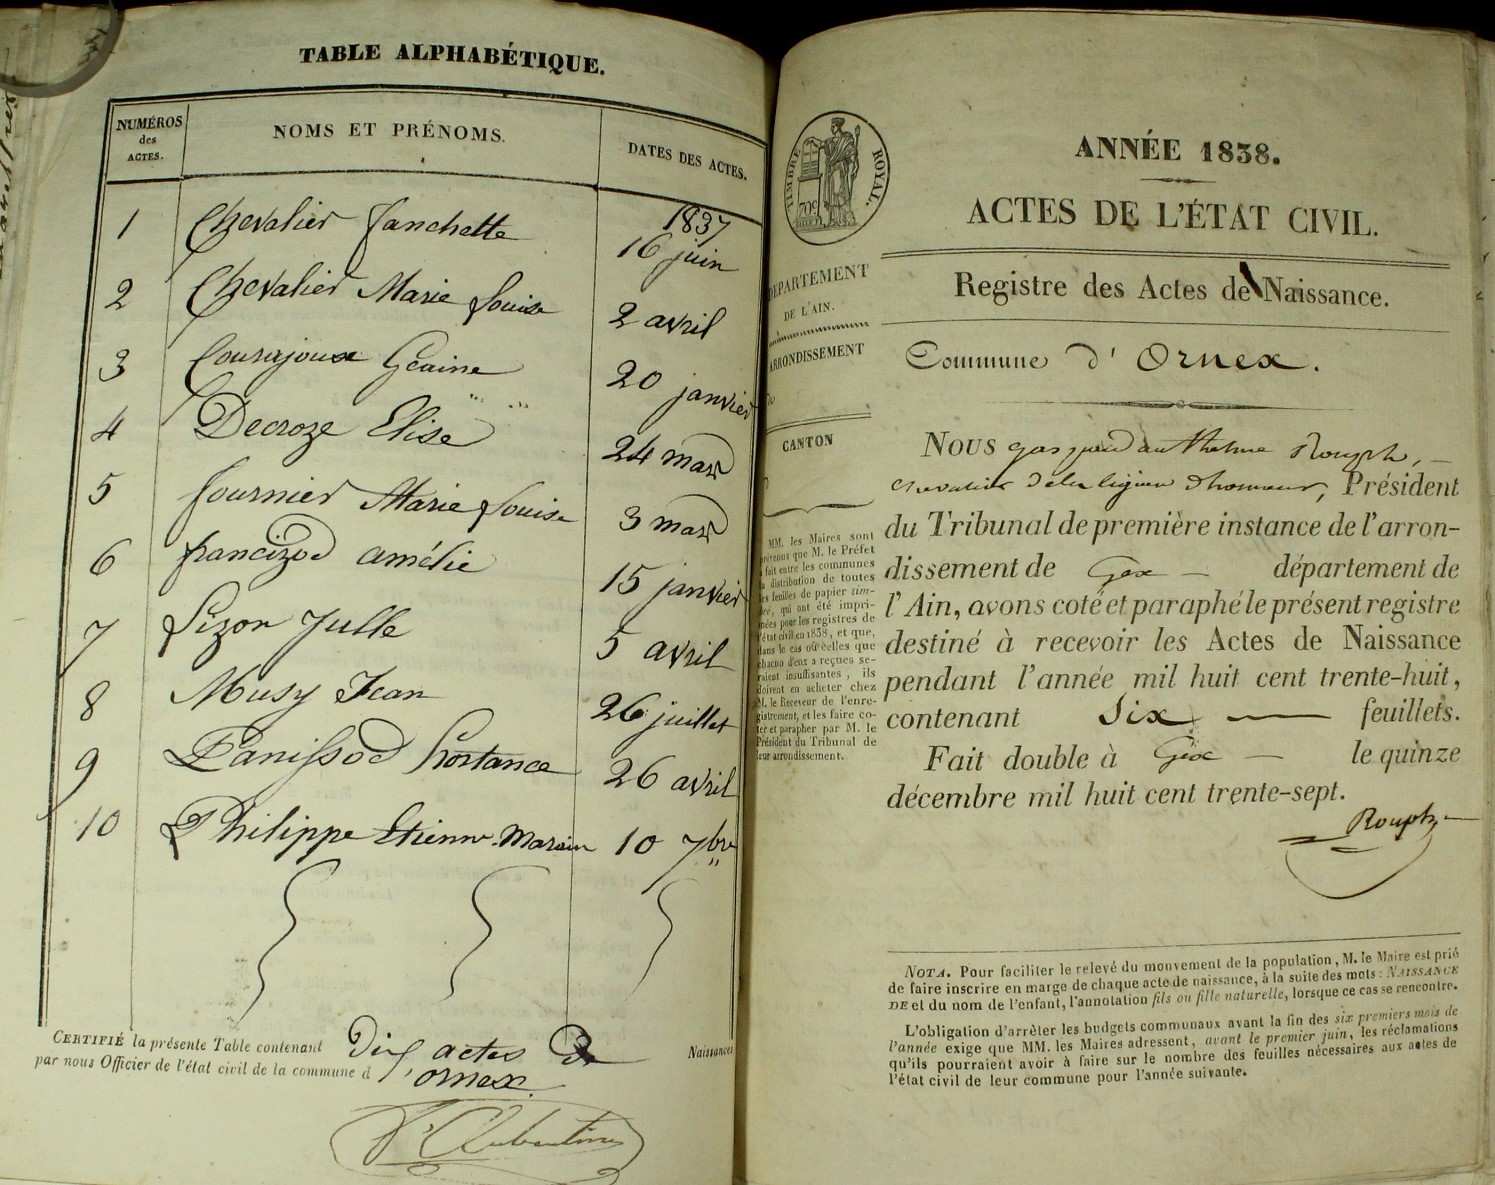 TABLE ALPHABÉTIQUE.
NUMÉROS des ACTES.
NOMS ET PRÉNOMS.
DATES DES ACTES.
1837
1 Chevalier Fanchette 16 juin
2 Chevalier Marie Louise 2 avril
3 Courajoux 20 janvier
4 Decroze Elise 24 mars
5 Fournier Marie Louise 3 mars
6 francizod amélie 15 janvier
7 Sizon Julle 5 avril
8 Musy Jean 26 juillet
9 Panissod hortance 26 avril
10 Philippe Etienne 10 7bre
CERTIFIÉ la présente Table contenant Dix actes De Naissances
par nous Officier de l'état civil de la commune d'ornex.
TIMBRE ROYAL.
70c
ANNÉE 1838.
ACTES DE L'ÉTAT CIVIL.
Registre des Actes de Naissance.
DÉPARTEMENT
DE L'AIN.
ARRONDISSEMENT
CANTON
Commune d'Ornex.
NOUS gaspard anthelme Rouph,
chevalier de la légion d'honneur, Président
du Tribunal de première instance de l'arron-
dissement de Gex département de
l'Ain, avons coté et paraphé le présent registre
destiné à recevoir les Actes de Naissance
pendant l'année mil huit cent trente-huit,
contenant Six feuillets.
Fait double à Gex le quinze
décembre mil huit cent trente-sept.
MM. les Maires sont
prévenus que M. le Préfet
a fait entre les communes
la distribution de toutes
les feuilles de papier tim-
bré, qui ont été impri-
mées pour les registres de
l'état civil en 1838, et que,
dans le cas où celles que
chacun d'eux a reçues se-
raient insuffisantes, ils
doivent en acheter chez
M. le Receveur de l'enre-
gistrement, et les faire co-
ter et parapher par M. le
Président du Tribunal de
leur arrondissement.
NOTA. Pour faciliter le relevé du mouvement de la population, M. le Maire est prié
de faire inscrire en marge de chaque acte de naissance, à la suite des mots : NAISSANCE
DE et du nom de l'enfant, l'annotation fils ou fille naturelle, lorsque ce cas se rencontre.
L'obligation d'arrêter les budgets communaux avant la fin des six premiers mois de
l'année exige que MM. les Maires adressent, avant le premier juin, les réclamations
qu'ils pourraient avoir à faire sur le nombre des feuilles nécessaires aux actes de
l'état civil de leur commune pour l'année suivante.